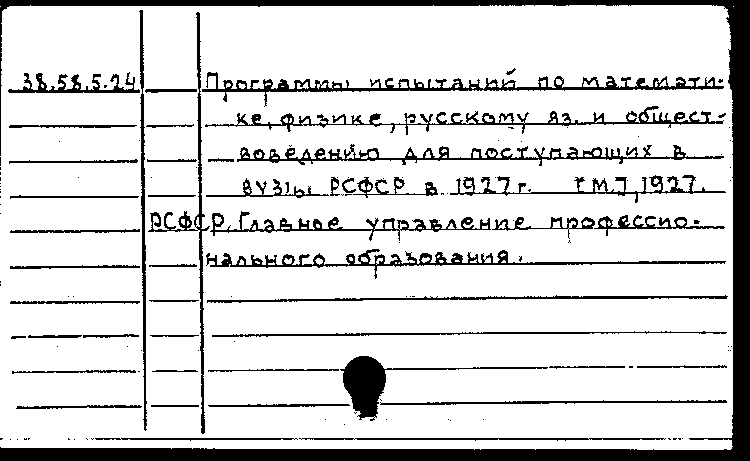 38.58.5.24 Программы испытаний по математи-
ке, физике, русскому яз. и общест-
воведению для поступающих в
ВУЗы РСФСР в 1927 г. [М.], 1927.
РСФСР. Главное управление профессио-
нального образования.